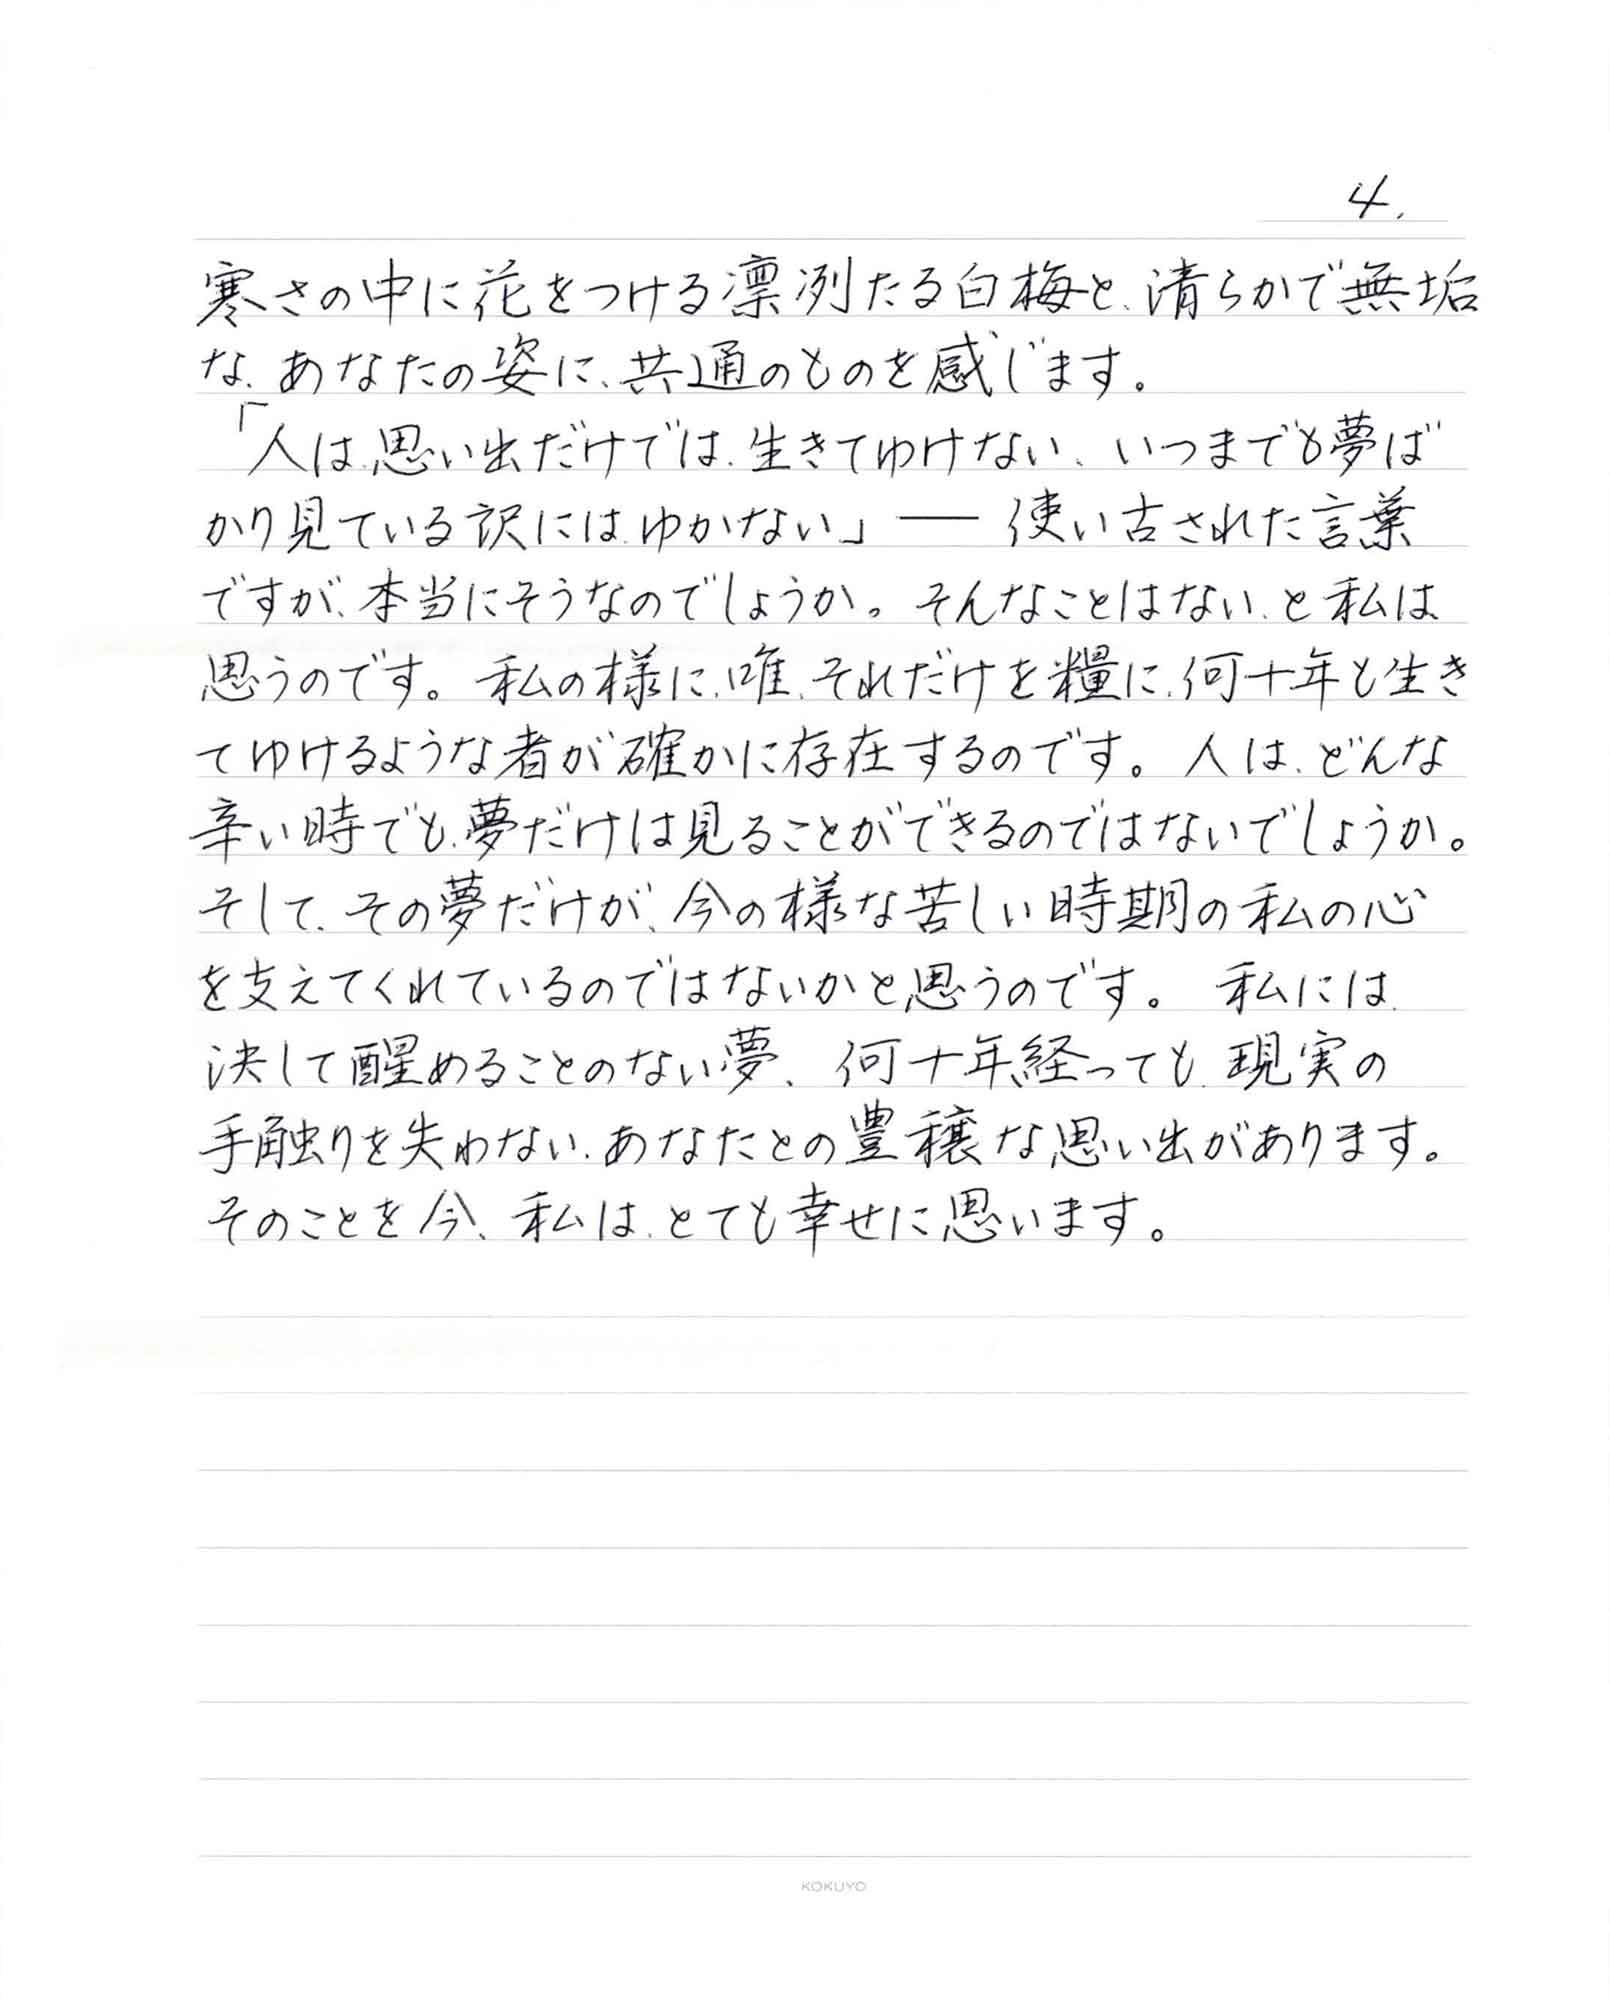 4.
寒さの中に花をつける凛冽たる白梅と、清らかで無垢
な、あなたの姿に、共通のものを感じます。
「人は、思い出だけでは、生きてゆけない、いつまでも夢ば
かり見ている訳には、ゆかない」── 使い古された言葉
ですが、本当にそうなのでしょうか。そんなことはない、と私は
思うのです。私の様に、唯、それだけを糧に、何十年も生き
てゆけるような者が確かに存在するのです。人は、どんな
辛い時でも、夢だけは見ることができるのではないでしょうか。
そして、その夢だけが、今の様な苦しい時期の私の心
を支えてくれているのではないかと思うのです。私には、
決して醒めることのない夢、何十年経っても、現実の
手触りを失わない、あなたとの豊穣な思い出があります。
そのことを今、私は、とても幸せに思います。
KOKUYO